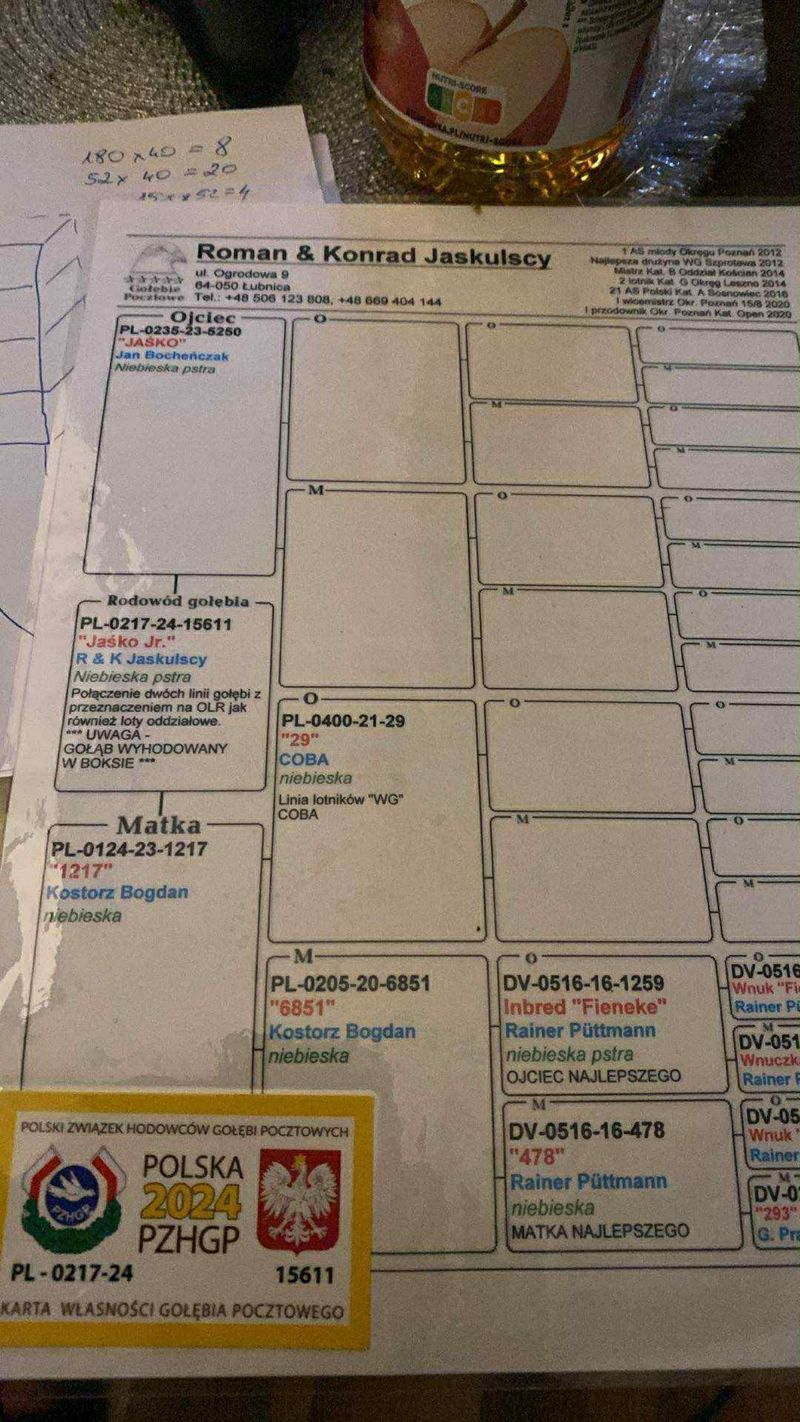 NUTRI-SCORE
180 x 40 = 8
52 x 40 = 20
Roman & Konrad Jaskulscy
ul. Ogrodowa 9
64-050 Łubnica
Tel.: +48 506 123 808, +48 669 404 144
Gołębie
Pocztowe
1 AS młody Okręgu Poznań 2012
Najlepsza drużyna WG Szprotawa 2012
Mistrz Kat. B Oddział Kościan 2014
2 lotnik Kat. G Okręg Leszno 2014
21 AS Polski Kat. A Sosnowiec 2016
I wicemistrz Okr. Poznań 15/8 2020
I przodownik Okr. Poznań Kat. Open 2020
Ojciec
PL-0235-23-5250
"JAŚKO"
Jan Bocheńczak
Niebieska pstra
O
M
O
M
O
M
O
M
O
M
O
M
O
M
Rodowód gołębia
PL-0217-24-15611
"Jaśko Jr."
R & K Jaskulscy
Niebieska pstra
Połączenie dwóch linii gołębi z
przeznaczeniem na OLR jak
również loty oddziałowe.
*** UWAGA -
GOŁĄB WYHODOWANY
W BOKSIE ***
Matka
PL-0124-23-1217
"1217"
Kostorz Bogdan
niebieska
O
PL-0400-21-29
"29"
COBA
niebieska
Linia lotników "WG"
COBA
O
M
O
M
O
M
M
PL-0205-20-6851
"6851"
Kostorz Bogdan
niebieska
O
DV-0516-16-1259
Inbred "Fieneke"
Rainer Püttmann
niebieska pstra
OJCIEC NAJLEPSZEGO
M
DV-0516-16-478
"478"
Rainer Püttmann
niebieska
MATKA NAJLEPSZEGO
O
DV-0516
Wnuk "Fie
Rainer Pü
M
DV-051
Wnuczk
Rainer P
O
DV-05
Wnuk "
Rainer
M
DV-0
"293"
G. Pra
POLSKI ZWIĄZEK HODOWCÓW GOŁĘBI POCZTOWYCH
PZHGP
POLSKA
2024
PZHGP
PL - 0217-24
15611
KARTA WŁASNOŚCI GOŁĘBIA POCZTOWEGO